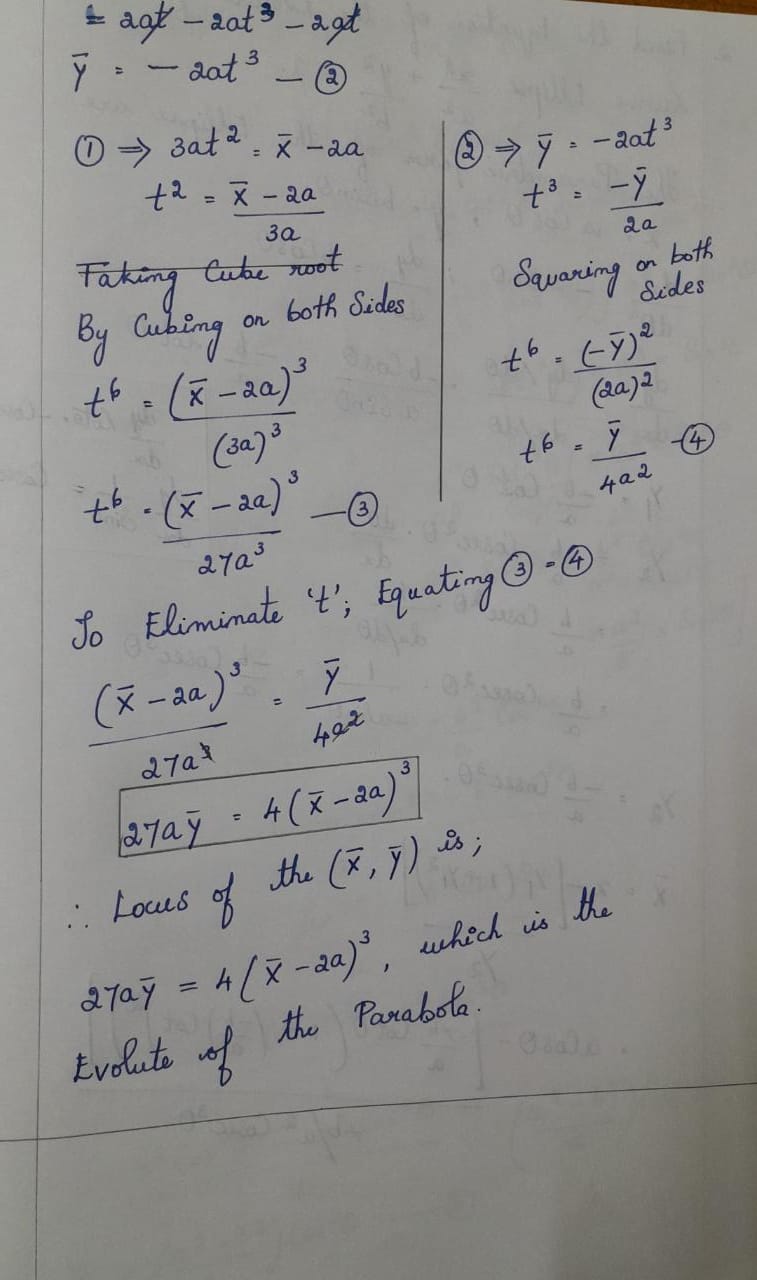 = 2at - 2at³ - 2at
ȳ = - 2at³ - ②
① ⇒ 3at² = x̄ - 2a
t² = (x̄ - 2a)/3a
Taking Cube root
By Cubing on both Sides
t⁶ = (x̄ - 2a)³/(3a)³
t⁶ = (x̄ - 2a)³/27a³ - ③
② ⇒ ȳ = -2at³
t³ = -ȳ/2a
Squaring on both
Sides
t⁶ = (-ȳ)²/(2a)²
t⁶ = ȳ/4a² - ④
To Eliminate 't'; Equating ③ = ④
(x̄ - 2a)³/27a³ = ȳ/4a²
27aȳ = 4(x̄ - 2a)³
∴ Locus of the (x̄, ȳ) is;
27aȳ = 4(x̄ - 2a)³, which is the
Evolute of the Parabola.